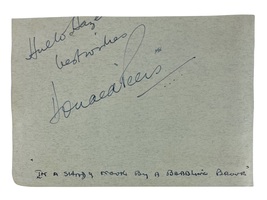 Hullo Haze
best wishes
Donald Peers
"IN A SHADY NOOK BY A BABBLING BROOK"